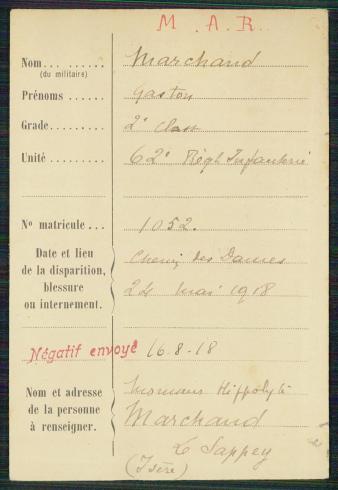 M. A. R.
Nom... Marchand
(du militaire)
Prénoms ...... Gaston
Grade......... 2e Class
Unité ........ 62e Régt Infanterie
No matricule ... 1052.
Date et lieu
de la disparition, Chemin des Dames
blessure 24 mai 1918
ou internement.
Négatif envoyé 16-8-18
Nom et adresse Hippolyte
de la personne Marchand
à renseigner. Le Sappey
(Isère)